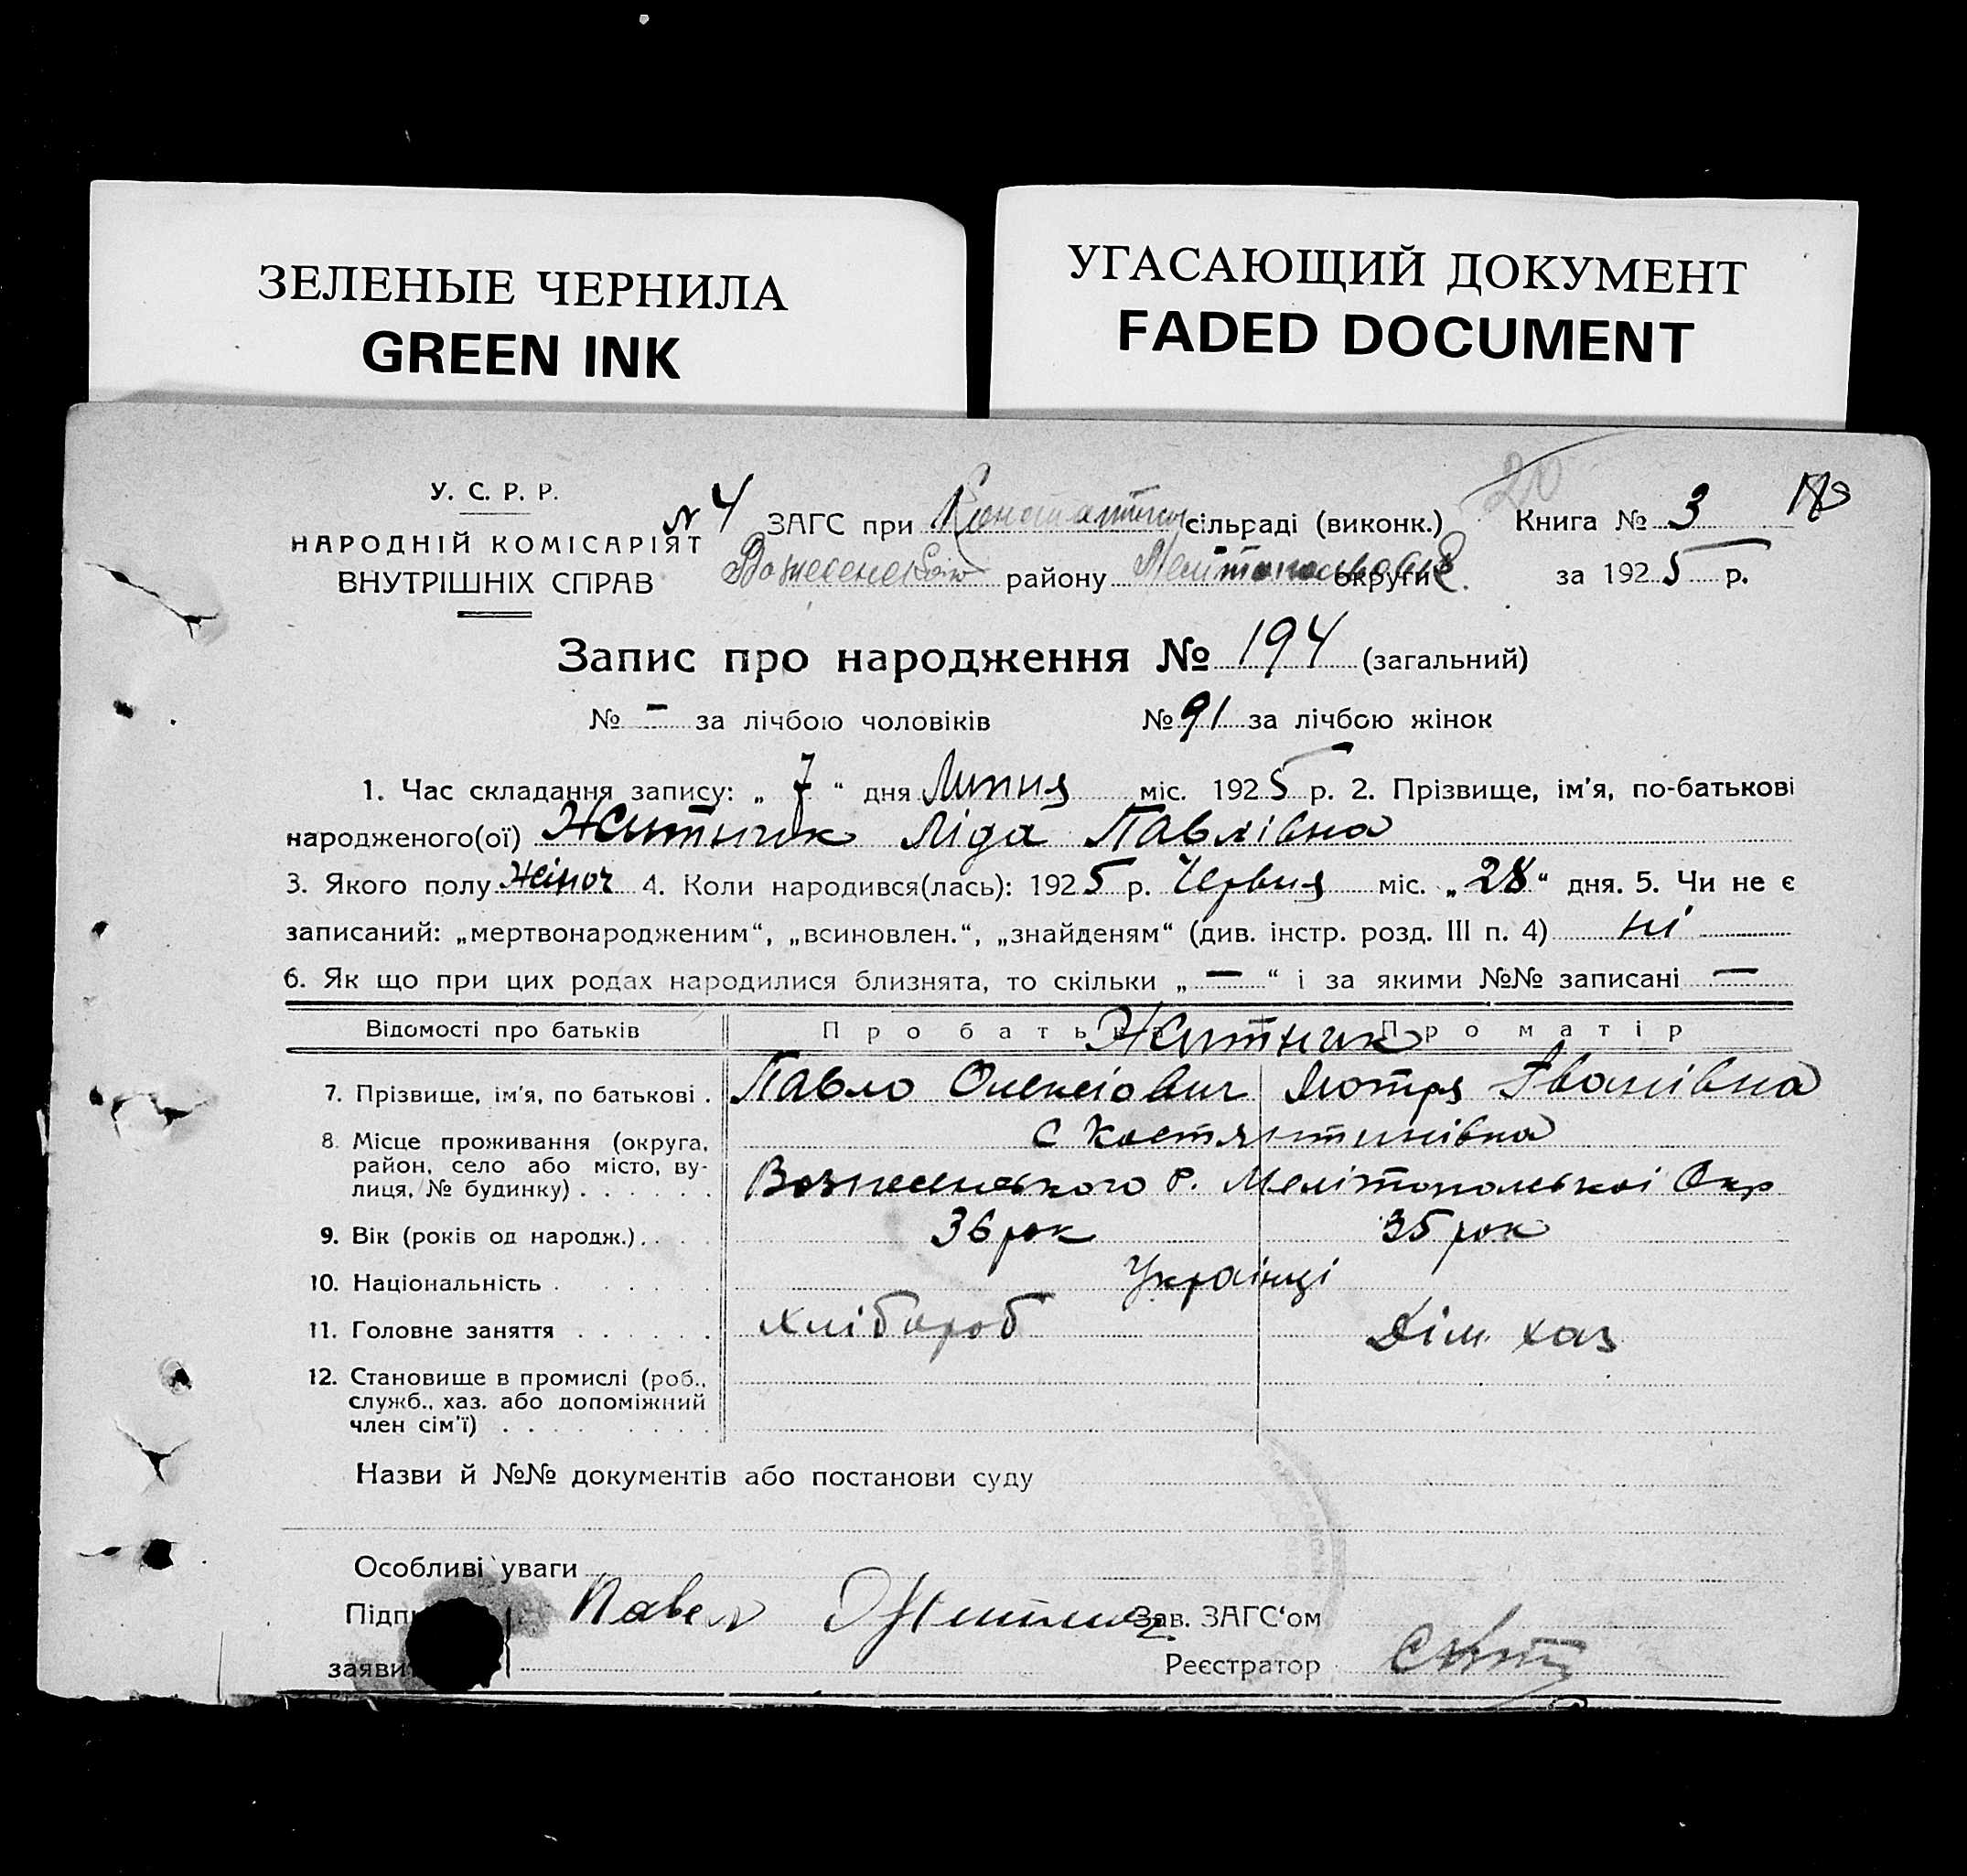 ЗЕЛЕНЫЕ ЧЕРНИЛА
GREEN INK
УГАСАЮЩИЙ ДОКУМЕНТ
FADED DOCUMENT
У. С. Р. Р.
НАРОДНІЙ КОМІСАРІЯТ
ВНУТРІШНІХ СПРАВ
N 4 ЗАГС при сільраді (виконк.) Книга № 3
району округи за 1925 р.
Запис про народження № 194 (загальний)
№ - за лічбою чоловіків № 91 за лічбою жінок
1. Час складання запису: „ 7 “ дня Липня міс. 1925 р. 2. Прізвище, ім'я, по-батькові
народженого(ої) Житник Ліда Павлівна
3. Якого полу Жіноч 4. Коли народився(лась): 1925 р. Червня міс. „28“ дня. 5. Чи не є
записаний: „мертвонародженим“, „всиновлен.“, „знайденям“ (див. інстр. розд. III п. 4) ні
6. Як що при цих родах народилися близнята, то скільки „ — “ і за якими №№ записані —
Відомості про батьків Про батька Про матір
Житник
7. Прізвище, ім'я, по батькові . Павло Олексіович Мотря Іванівна
8. Місце проживання (округа, район, село або місто, вулиця, № будинку) . . . . . . с Костянтинівка
Вознесенського Р. Мелітопольскоі Окр
9. Вік (років од народж.). . . . 36 рок 35 рок
10. Національність . . . . . . Українці
11. Головне заняття . . . . . . хлібороб Дім. хаз
12. Становище в промислі (роб.,
служб., хаз. або допоміжний
член сім'ї) . . . . . . . .
Назви й №№ документів або постанови суду
Особливі уваги
Павел Житник Зав. ЗАГС'ом
Реєстратор